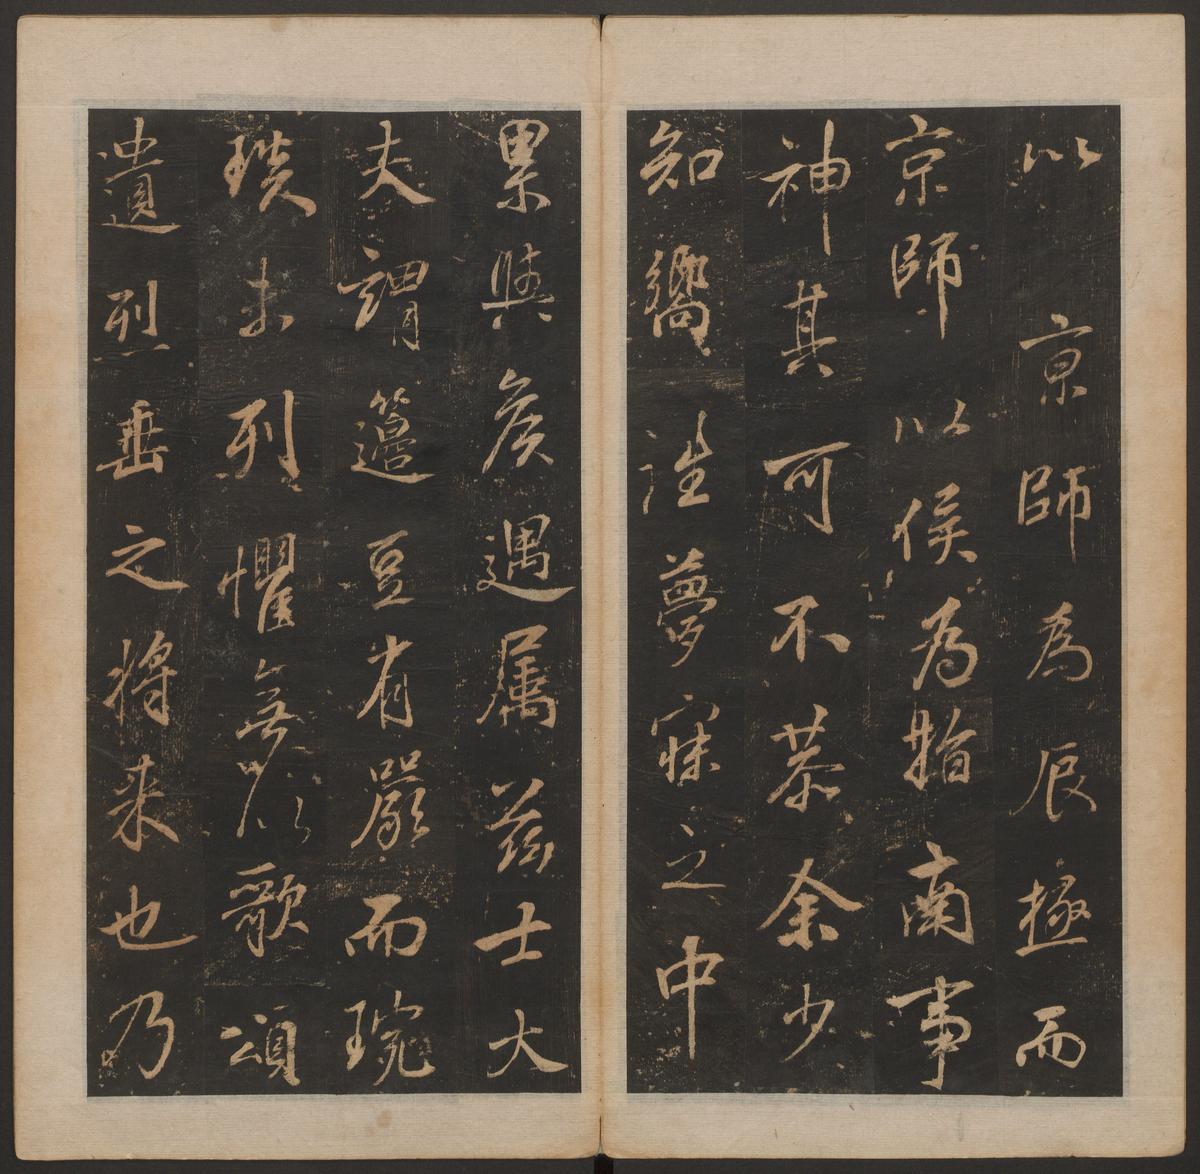 以京師為辰極而
京師以侯為指南事
神其可不恭余少
知嚮往夢寐之中
累與侯遇属兹士大
夫謂籩豆有嚴而琬
琰未列懼無以歌頌
遺烈垂之将来也乃